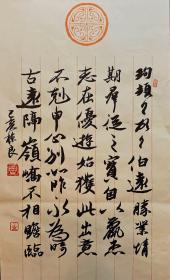 珣頓首頓首伯遠勝業情
期群從之寶自以羸患
志在優遊始獲此出意
不剋申分別如昨永為疇
古遠隔嶺嶠不相瞻臨
己亥